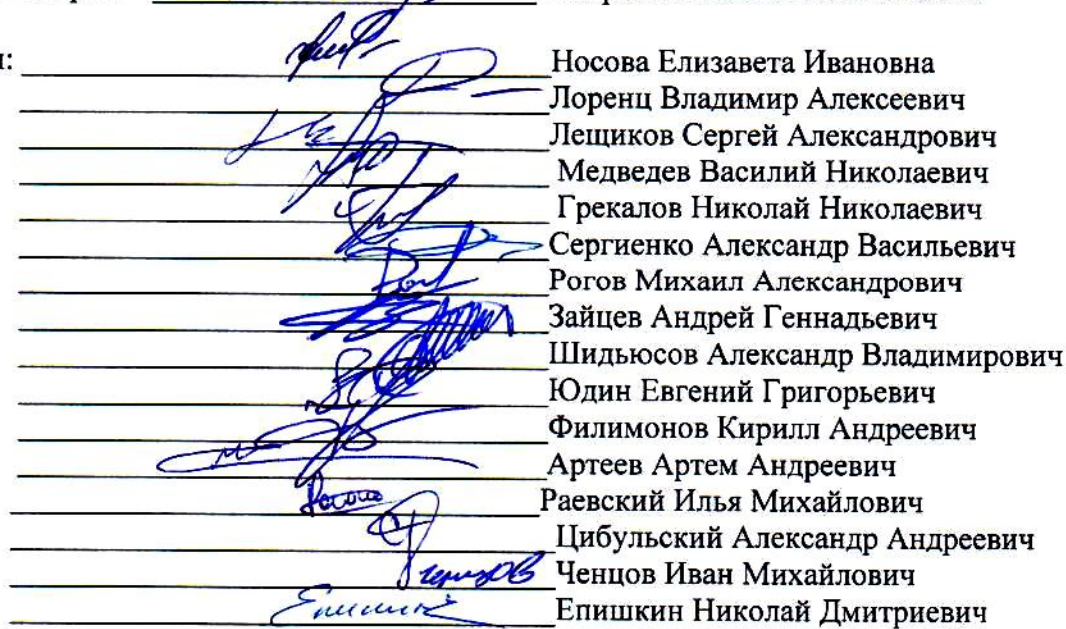 Носова Елизавета Ивановна
Лоренц Владимир Алексеевич
Лещиков Сергей Александрович
Медведев Василий Николаевич
Грекалов Николай Николаевич
Сергиенко Александр Васильевич
Рогов Михаил Александрович
Зайцев Андрей Геннадьевич
Шидьюсов Александр Владимирович
Юдин Евгений Григорьевич
Филимонов Кирилл Андреевич
Артеев Артем Андреевич
Раевский Илья Михайлович
Цибульский Александр Андреевич
Ченцов Иван Михайлович
Епишкин Николай Дмитриевич